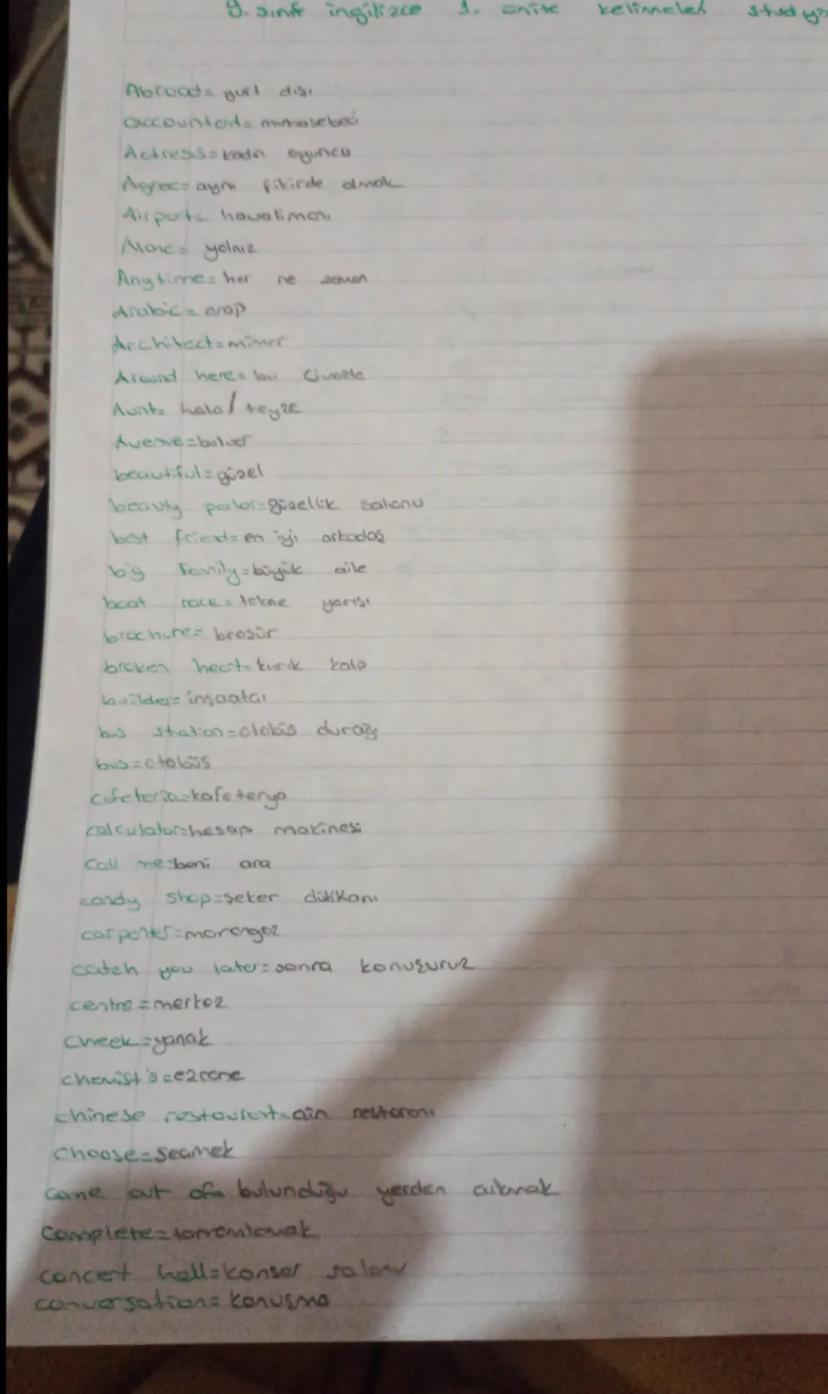 9. sınıf ingilizce 1. ünite kelimeleri study
Abroad= yurt dışı
accountant= muhasebeci
Actress=kadın oyuncu
Agree= aynı fikirde olmak
Airport= havalimanı
Alone= yalnız
Anytime= her ne zaman
Arabic= arap
Architect=mimar
Around here= bu civarda
Aunt= hala/teyze
Avenue=bulvar
beautiful=güzel
beauty parlor=güzellik salonu
best friend=en iyi arkadaş
big family=büyük aile
boat race=tekne yarışı
brochure= broşür
broken heart=kırık kalp
builder=inşaatcı
bus station=otobüs durağı
bus=otobüs
cafeteria=kafeterya
calculator=hesap makinesi
call me=beni ara
candy shop=şeker dükkanı
carpenter=marangoz
catch you later=sonra konuşuruz
centre=merkez
cheek=yanak
chemist's=eczane
chinese restaurant=çin restoranı
choose=seçmek
come out of= bulunduğu yerden çıkmak
complete=tamamlamak
concert hall=konser salonu
conversation= konuşma